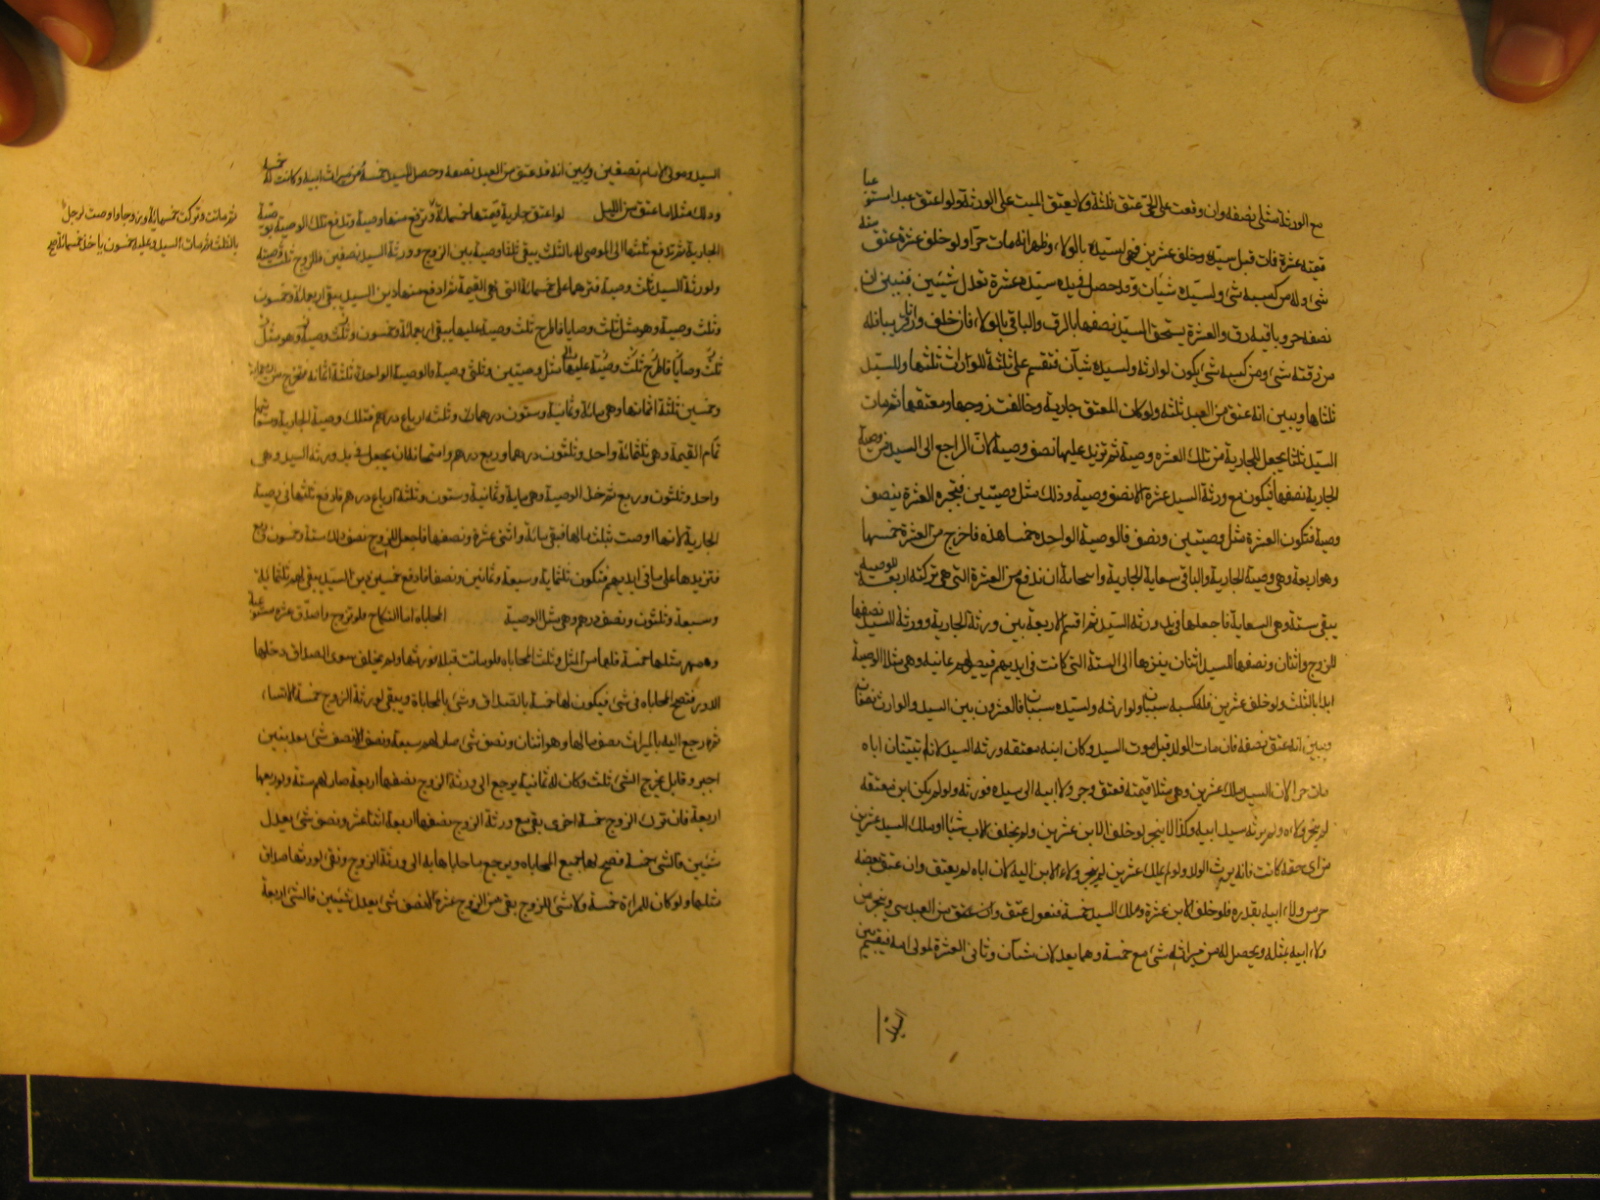 مع الورثة مثلى نصفه وان وقعت على الحى عتق ثلثه ولا يعتق الميت على الورثة ولو اعتق عبدا مستوعبا
قيمته عشرة فات قبل سيده وخلف عشرين فهى لسيده بالولاء وظهر انه مات حرا ولو خلف عشرة عتق منه
شئ وله من كسبه شئ ولسيده شيان وقد حصل فى يد سيده عشرة تعدل شيئين فتبين ان
نصفه حر وباقيه رق والعشرة يستحق السيد نصفها بالرق والباقى بالولاء فان خلف وارثا
من رقبته شئ ومن كسبه شئ يكون لوارثه ولسيده شيآن فتقسم على ثلثة للوارث ثلثها وللسيد
ثلثاها ويبين انه عتق من العبد ثلثه ولو كان المعتق جارية وخالفت زوجها ومعتقها ثم مات
السيد ثلثا يجعل للجارية من تلك العشره وصية ثم تزيد عليها نصف وصية لان الراجع الى السيد من وصية
الجارية نصفها فيكون مع ورثة السيد عشرة الا نصف وصية وذلك مثل وصيتين فتجبر العشرة بنصف
وصية فتكون العشرة مثل وصيتين ونصف فالوصية الواحدة خمسا هذه فاخرج من العشرة خمسها
وهو اربعة وهى وصية الجارية والباقى سعاية الجارية وامتحانه ان تدفع من العشرة التى هى تركته اربعة للوصية
يبقى ستة وهى السعاية فاجعلها فى يد ورثة السيد ثم اقسم الاربعة بين ورثة الجارية وورثة السيد نصفها
للزوج واثنان ونصفها للسيد اثنان يزيدها الى الستة التى كانت فى ايديهم فيصل لهم ثمانية وهى مثلا الوصية
ابدا بالثلث ولو خلف عشرين فله كسبه شيئان ولوارثه ولسيده شيئان فالعشرون بين السيد والوارث نصفان
وتبين انه عتق نصفه فان مات الولد قبل موت السيد وكان ابنه معتقه ورثه السيد لانا تبينان اباه
مات حرا لان السيد ملك عشرين وهى مثلا قيمته فعتق وجر ولا ابيه الى سيده فورثه ولو لم يكن ابن معتقه
لم ينجر ولاءه ولم يرثه سيد ابيه وكذا لا ينجر لو خلف الابن عشرين ولم يخلف الاب شيئا او ملك السيد عشرين
من اى جهة كانت فانه يرث الولد ولو لم يملك عشرين لم ينجر ولاء الابن اليه لان اباه لم يعتق وان عتق بعضه
جر من ولاء ابيه بقدره فلو خلف الابن عشرة وملك السيد خمسة فنقول عتق من العبد شئ وينجر من
ولاء ابيه مثله ويحصل له من ميراثه شئ مع خمسة وهما يعدلان شيآن وباقى العشرة لمولى امه فيقسم بين
السيد
السيد ومولى الام نصفين ويبين انه قد عتق من العبد نصفه وحصل للسيد خمسة من ميراث ابيه وكانت له خمسة
وذلك مثلا ما عتق من العبد ولو اعتق جارية قيمتها خمسمائة وترفع منها وصية وتدفع تلك الوصية
الجارية ثم تدفع ثلثها الى الموصى له بالثلث يبقى ثلثا وصية بين الزوج وورثة السيد نصفين فللزوج ثلث وصية
ولورثة السيد ثلث وصية فتزدها على خمسمائة التى هى القيمة ثم ادفع منها دين السيد يبقى اربعمائة وخمسون
وثلث وصية وهو مثل ثلث وصايا فاطرح ثلث وصية عليها يبقى اربعمائة وخمسون وثلث وصية وهو مثل
ثلث وصايا فاطرح ثلث وصية عليها مثل وصيتين وثلثى وصية فالوصية الواحدة ثلثة اثمانه
وخمسين ثلثة اثمانها وهى مائة وثمانية وستون درهما وثلثة ارباع درهم فتلك وصية الجارية
تمام القيمة وهى ثلثمائة واحد وثلثون درهما وربع درهم وامتحانه ان يجعل فى يد ورثة السيد وهى
واحد وثلثون وربع ثم خذ الوصية وهى مائة وثمانية وستون وثلثة ارباع درهم فادفع ثلثها فى وصية
الجارية لانها اوصت بثلث مالها فبقى مائة واثنى عشرة ونصفها فاجعل للزوج نصف ذلك ستة وخمسون وربع
فتزيدها على ما فى ايديهم فتكون ثلثمائة وسبعة وثمانين ونصفا فادفع خمسين دين السيد يبقى لهم ثلثمائة
وسبعة وثلثون ونصف درهم وهى مثلا الوصية المحاباه اما النكاح فلو تزوج واصدق عشرة مستوعبة
ومهر مثلها خمسة فلها مهر المثل وثلث المحاباه فلو ماتت قبله فورثها ولم يخلف سوى الصداق دخلها
الدور فتصح المحاباه فى شئ فيكون لها خمسة بالصداق وشئ بالمحاباة ويبقى لورثة الزوج خمسة الا شيا
ثم رجع اليه بالميراث نصف مالها وهو اثنان ونصف شئ صار لهم سبعة ونصف الا نصف شئ يعدل شيئين
اجبر وقابل يخرج الشئ ثلثة وكان له ثمانية يرجع الى ورثة الزوج نصفها اربعة صار لهم ستة ولورثتها
اربعة فان ترك الزوج خمسة اخرى بقى مع ورثة الزوج نصفها اربعة اثنا عشر ونصف شئ يعدل
شيئين فالشئ خمسة فصح لها جميع المحاباه ويرجع ما حاباها به الى ورثة الزوج وبقى لورثتها صداق
مثلها ولو كان للمراة خمسة ولا شئ للزوج بقى مع الزوج عشرة الا نصف شئ يعدل شيئين فالشئ اربعة
ثم ماتت وتركت خمسمائة وزوجا واوصت لرجل
بالثلث ثم مات السيد وعليه خمسون ياخذ خمسمائة